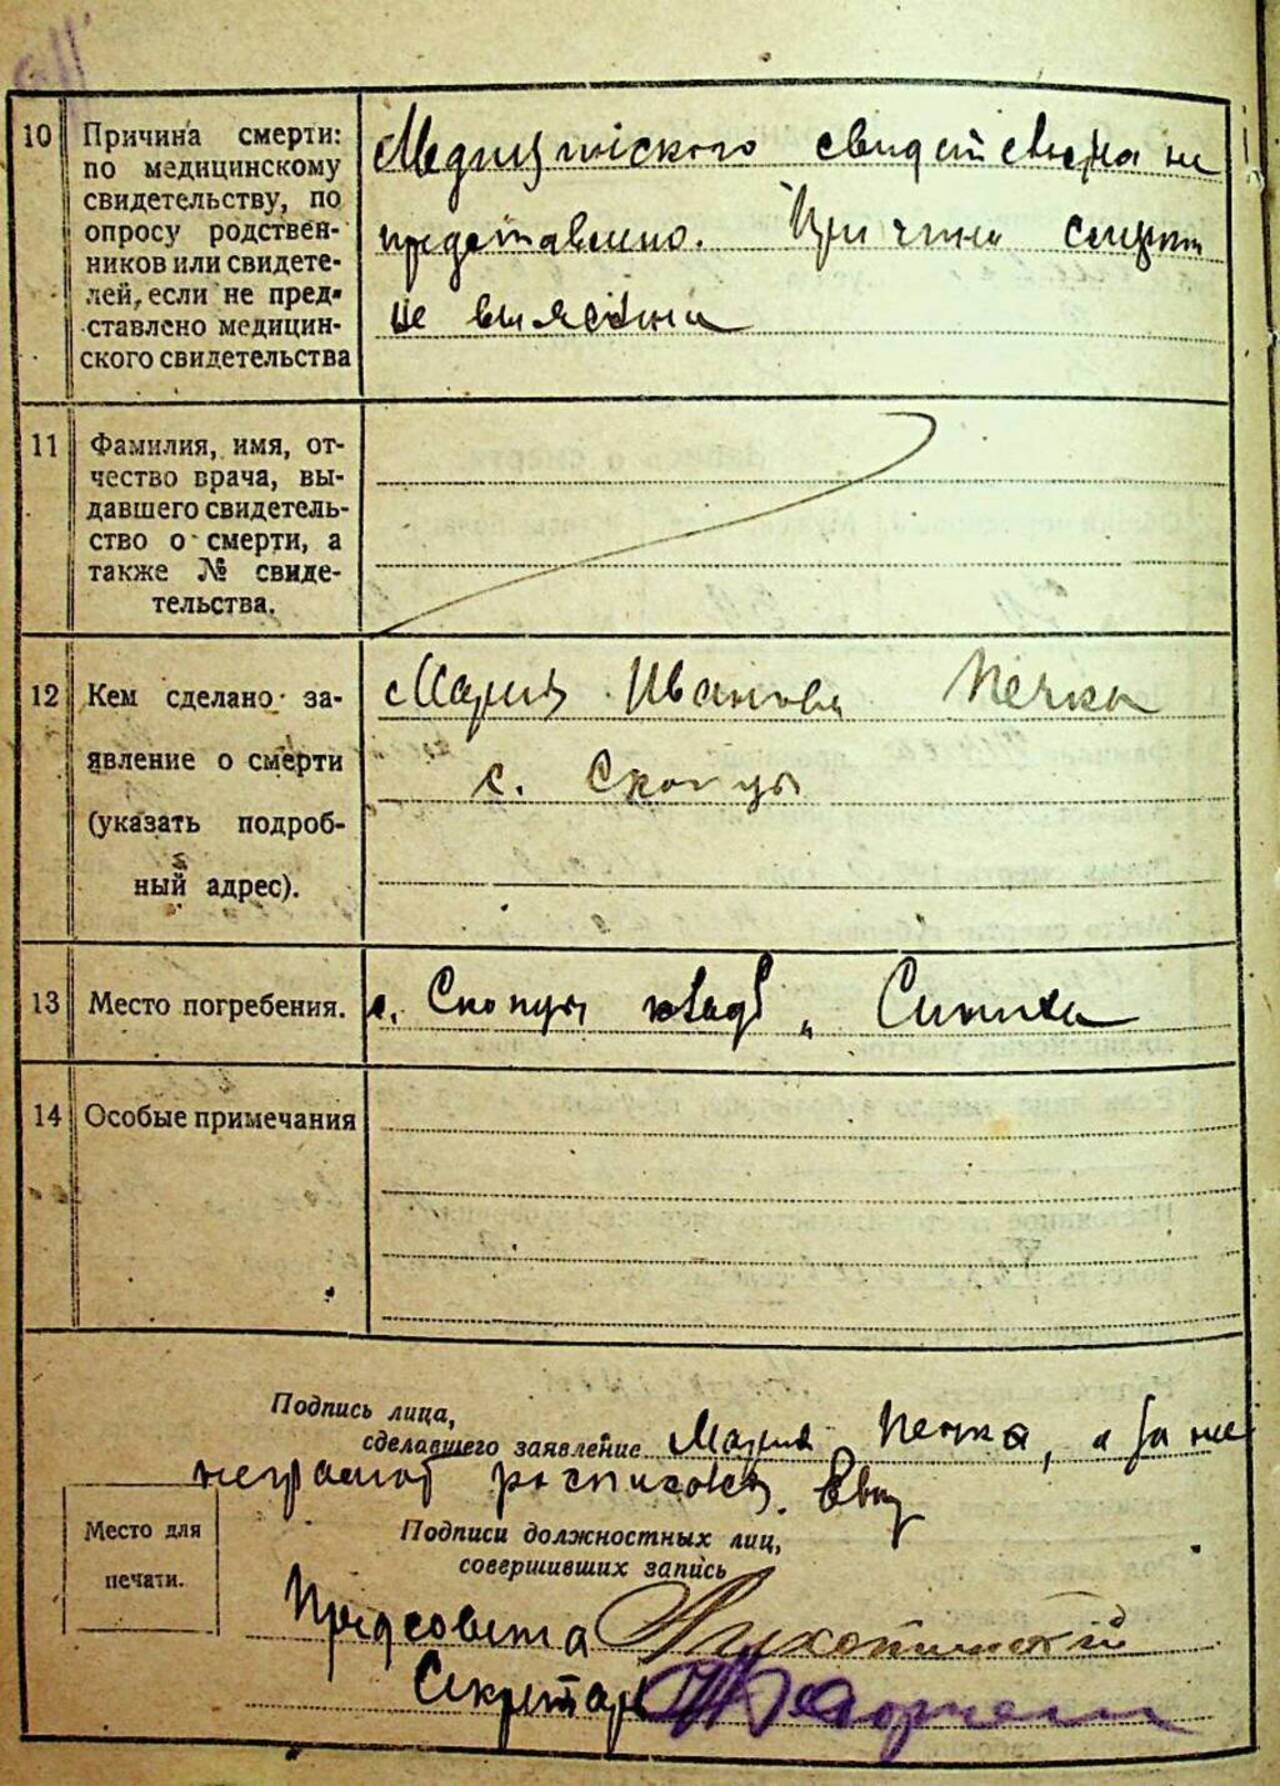 10 Причина смерти:
по медицинскому
свидетельству, по
опросу родствен-
ников или свидете-
лей, если не пред-
ставлено медицин-
ского свидетельства
Медицинского свидетельства не
представлено. Причина смерти
не выяснена
11 Фамилия, имя, от-
чество врача, вы-
давшего свидетель-
ство о смерти, а
также № свиде-
тельства.
12 Кем сделано за-
явление о смерти
(указать подроб-
ный адрес).
Мария Иванова Печка
с. Скопцы
13 Место погребения.
с. Скопцы кладб „ Синиха
14 Особые примечания
Подпись лица,
сделавшего заявление Мария Печка, а за нее
неграмот росписався
Место для
печати.
Подписи должностных лиц,
совершивших запись
Предсовета
Секретарь